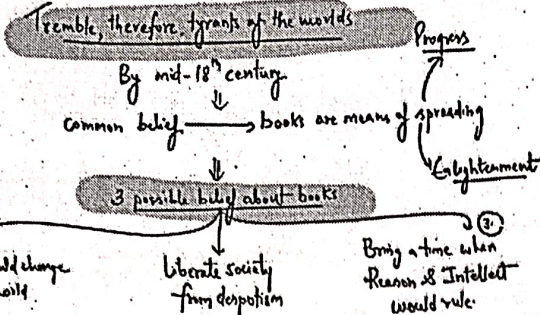 Tremble, therefore, tyrants of the worlds
Progress
By mid-18th century
⇓
common belief → books are means of spreading
Enlightenment
⇓
3 possible belief about books
3.
change
Liberate society
from despotism
Bring a time when
Reason & Intellect
would rule.